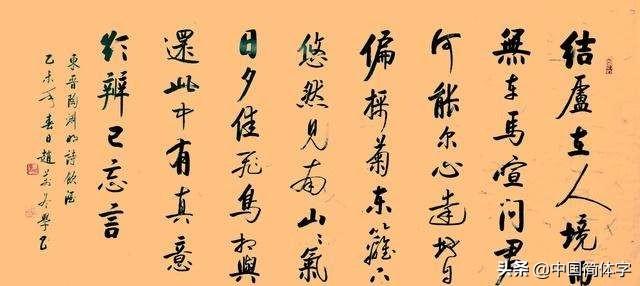 結廬在人境而
無車馬喧问君
何能尔心遠地自
偏採菊東籬下
悠然見南山〻氣
日夕佳飛鳥相與
還此中有真意
欲辨已忘言
東晋陶渊明詩飲酒
乙未年春日趙
头条 @中国简体字